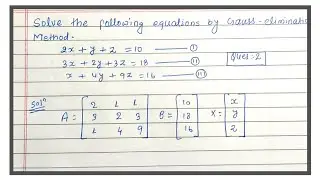 Solve the following equations by Gauss-elimination
Method.
2x + y + z = 10 ——— (i)
3x + 2y + 3z = 18 ——— (ii) Ques:-2
x + 4y + 9z = 16 ——— (iii)
Solⁿ
A = [2 1 1 B = [10 X = [x
3 2 3 18 y
1 4 9] 16] z]